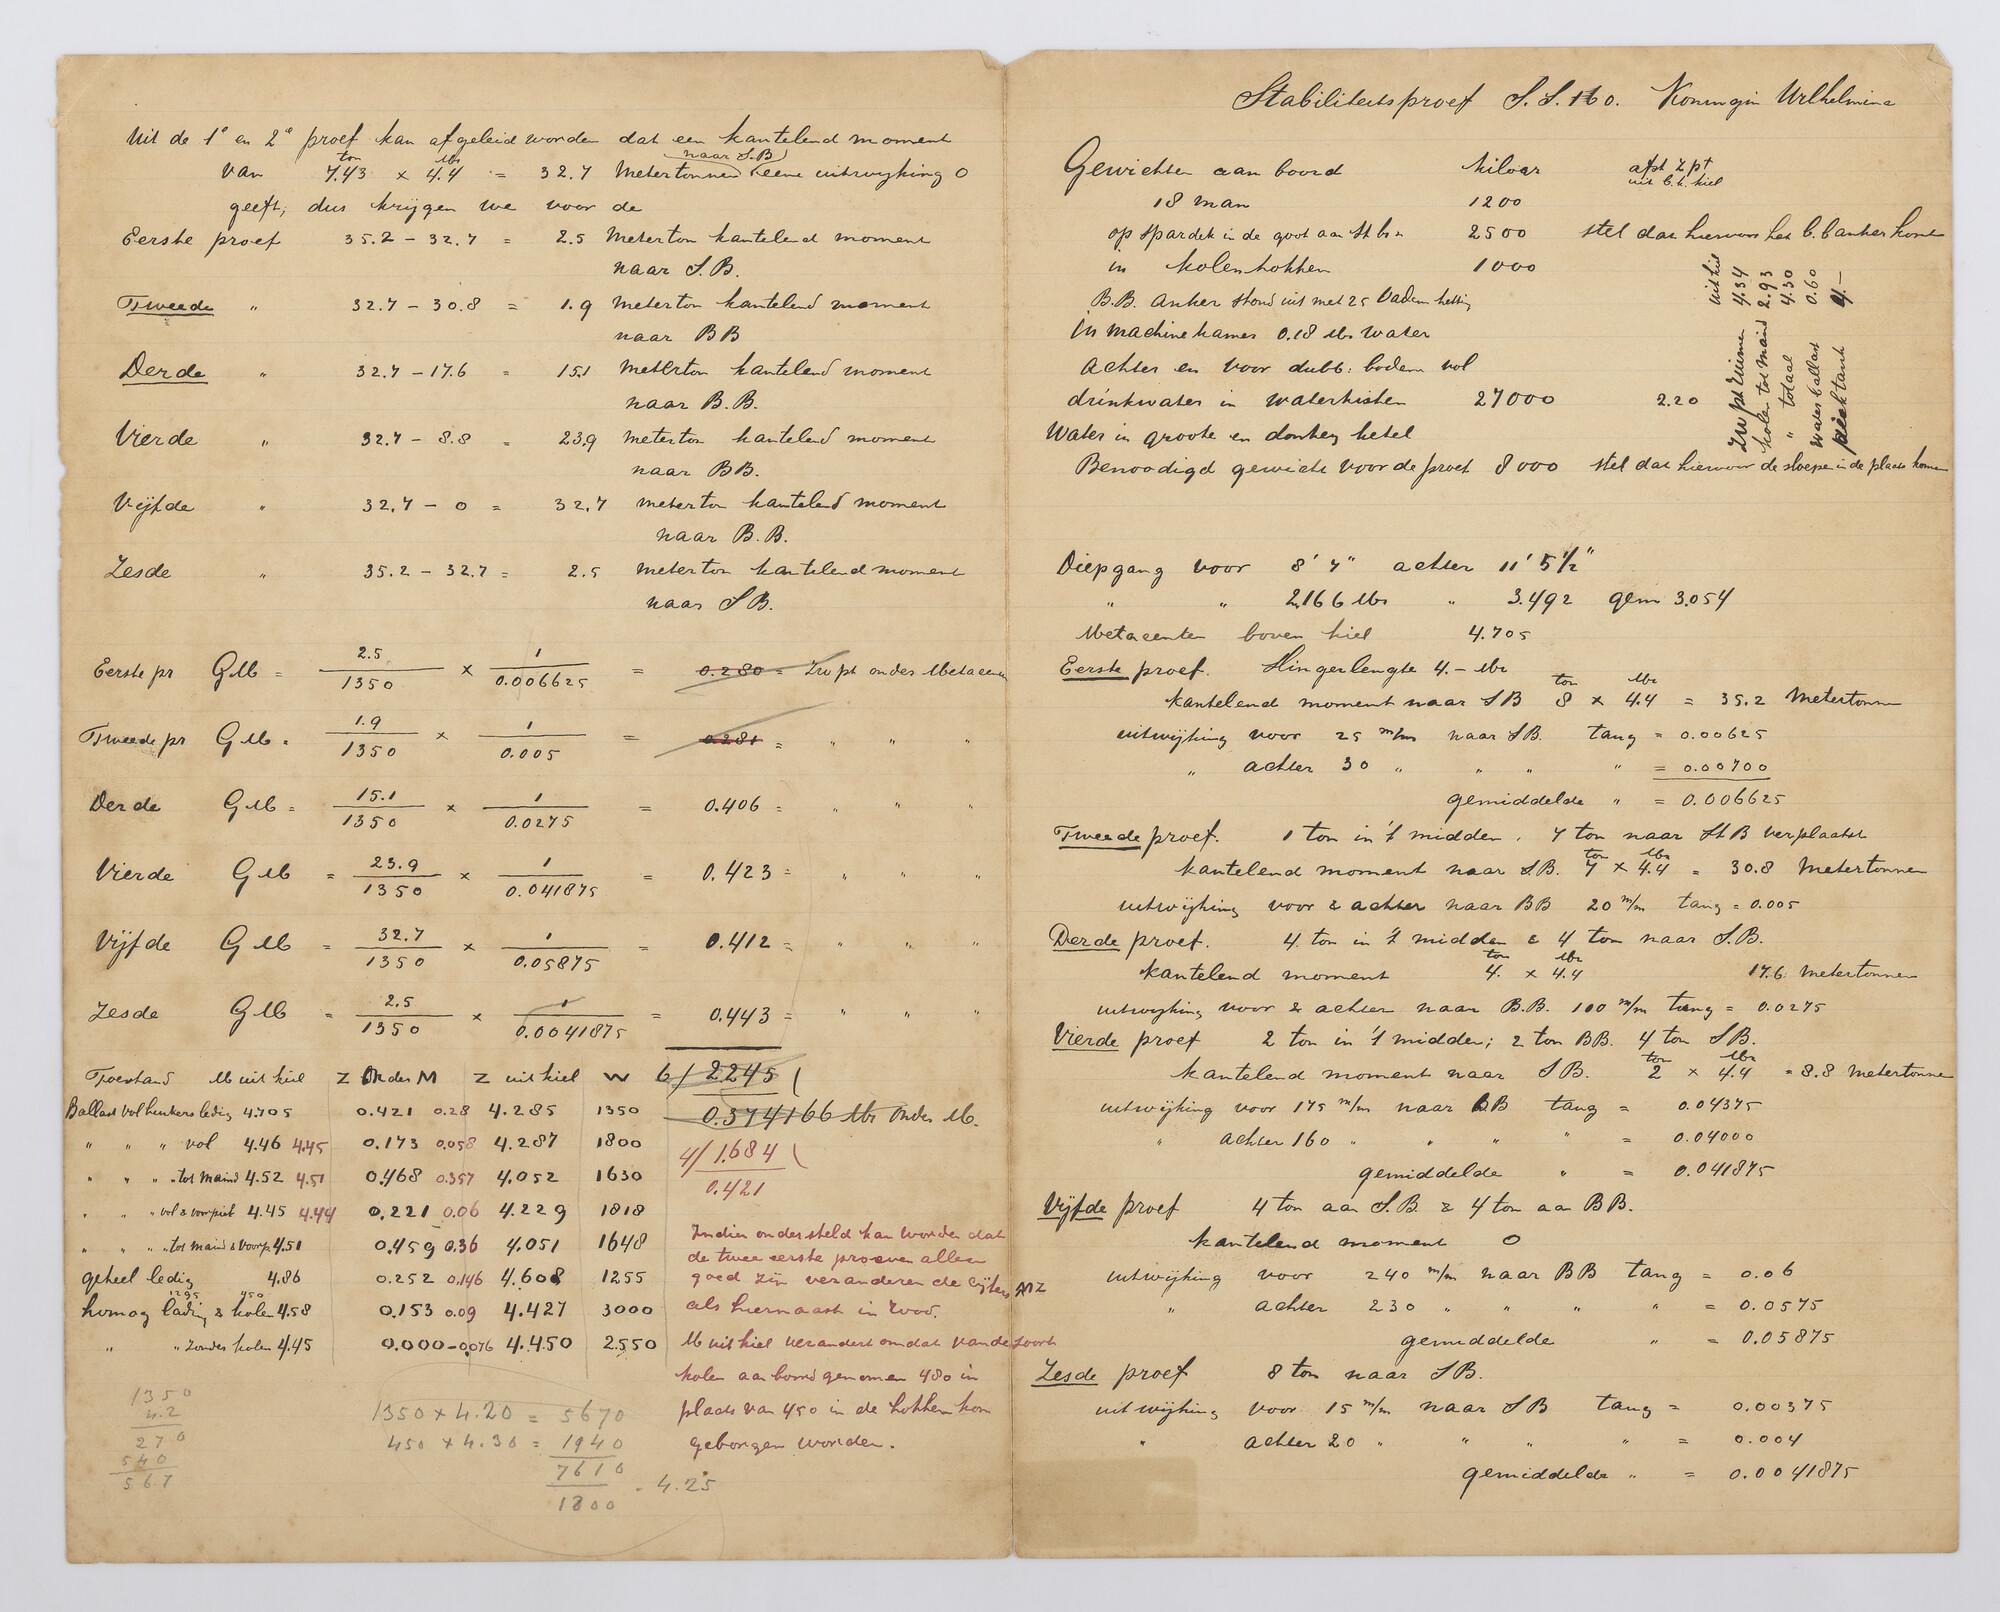 Uit de 1e en 2e proef kan afgeleid worden dat een kantelend moment
ton mtr naar S.B
van 7.43 x 4.4 = 32.7 Metertonnen eene uitwijking 0
geeft, dus krijgen we voor de
Eerste proef 35.2 - 32.7 = 2.5 Meterton kantelend moment
naar S.B.
Tweede " 32.7 - 30.8 = 1.9 Meterton kantelend moment
naar BB
Derde " 32.7 - 17.6 = 15.1 Meterton kantelend moment
naar B.B.
Vierde " 32.7 - 8.8 = 23.9 Meterton kantelend moment
naar BB.
Vijfde " 32.7 - 0 = 32.7 Meterton kantelend moment
naar B.B.
Zesde " 35.2 - 32.7 = 2.5 Meterton kantelend moment
naar SB.
Eerste pr GM = 2.5 / 1350 x 1 / 0.006625 = 0.280 = Zwpt onder Metacenter
Tweede pr GM = 1.9 / 1350 x 1 / 0.005 = 0.281 = " " "
Derde GM = 15.1 / 1350 x 1 / 0.0275 = 0.406 = " " "
Vierde GM = 23.9 / 1350 x 1 / 0.041875 = 0.423 = " " "
Vijfde GM = 32.7 / 1350 x 1 / 0.05875 = 0.412 = " " "
Zesde GM = 2.5 / 1350 x 1 / 0.0041875 = 0.443 = " " "
Toestand M uit kiel Z Onder M Z uit kiel W 6/ 2245 (
Ballast vol bunkers ledig 4.705 0.421 0.28 4.285 1350 0.374166 Mtr onder M.
" " " vol 4.46 4.45 0.173 0.058 4.287 1800 4/ 1.684 (
" " " tot maind 4.52 4.51 0.468 0.357 4.052 1630 0.421
" " " vol & voorpiek 4.45 4.44 0.221 0.06 4.229 1818
" " " tot maind & voorp 4.51 0.459 0.36 4.051 1648
geheel ledig 4.86 0.252 0.146 4.608 1255
1295 450
homog lading & kolen 4.58 0.153 0.09 4.427 3000
" " zonder kolen 4.45 0.000 -0.076 4.450 2550
Indien ondersteld kan worden dat
de twee eerste proeven alleen
goed zijn veranderen de cijfers MZ
als hiernaast in rood.
M uit kiel verandert omdat van de soort
kolen aan boord genomen 480 in
plaats van 450 in de hokken kon
geborgen worden.
1350
4.2
270
540
567
1350 x 4.20 = 5670
450 x 4.30 = 1940
7610
1800 = 4.25
Stabiliteitsproef S.S. 160. Koningin Wilhelmina
Gewichten aan boord kiloar afst z pt
uit b.k. kiel
18 man 1200
op spardek in de goot aan St b 2500 stel dat hiervoor het b.b anker komt
in kolenhokken 1000
B.B. anker stond uit met 25 vadem ketting
in machinekamer 0.18 Mtr water
achter en voor dubb: bodem vol
drinkwater in waterkisten 27000 2.20
Water in groote en donkey ketel
Benoodigd gewicht voor de proef 8000 stel dat hiervoor de sloepen in de plaats komen
uit kiel
Zwpt ruimen 4.34
kolen tot maind 2.93
" totaal 4.30
water ballast 0.60
piektank 4.-
Diepgang voor 8' 7" achter 11' 5½"
" " 2.166 Mtr " 3.492 gem 3.054
Metacenter boven kiel 4.705
Eerste proef. Slingerlengte 4.- Mtr
ton Mtr
kantelend moment naar SB 8 x 4.4 = 35.2 Metertonnen
uitwijking voor 25 m/m naar SB. tang = 0.00625
" achter 30 " " " " = 0.00700
gemiddelde " = 0.006625
Tweede proef. 1 ton in 't midden. 7 ton naar St B verplaatst
ton Mtr
kantelend moment naar S.B. 7 x 4.4 = 30.8 Metertonnen
uitwijking voor & achter naar BB 20 m/m tang = 0.005
Derde proef. 4 ton in 't midden & 4 ton naar S.B.
ton Mtr
kantelend moment 4. x 4.4 17.6 Metertonnen
uitwijking voor & achter naar B.B. 110 m/m tang = 0.0275
Vierde proef 2 ton in 't midden; 2 ton BB. 4 ton SB.
ton Mtr
kantelend moment naar SB. 2 x 4.4 = 8.8 Metertonnen
uitwijking voor 175 m/m naar BB tang = 0.04375
" achter 160 " " " " = 0.04000
gemiddelde " = 0.041875
Vijfde proef 4 ton aan S.B. & 4 ton aan BB.
kantelend moment 0
uitwijking voor 240 m/m naar BB tang = 0.06
" achter 230 " " " " = 0.0575
gemiddelde " = 0.05875
Zesde proef 8 ton naar SB.
uitwijking voor 15 m/m naar SB tang = 0.00375
" achter 20 " " " " = 0.004
gemiddelde " = 0.0041875